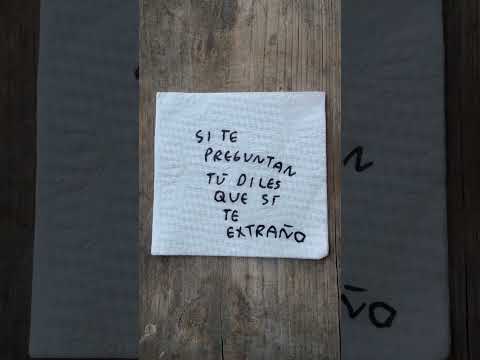 SI TE
PREGUNTAN
TÚ DILES
QUE SI
TE
EXTRAÑO